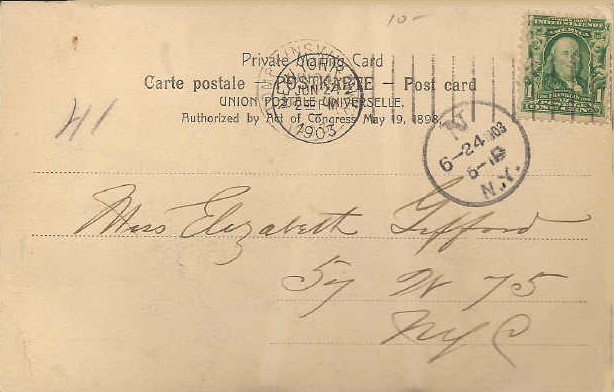 10-
Private Mailing Card
Carte postale — POSTKARTE — Post card
UNION POSTALE UNIVERSELLE.
Authorized by Act of Congress May 19, 1898.
1903
N
6-24 903
N.Y.
41
Miss Elizabeth Gifford
57 W 75
NYC